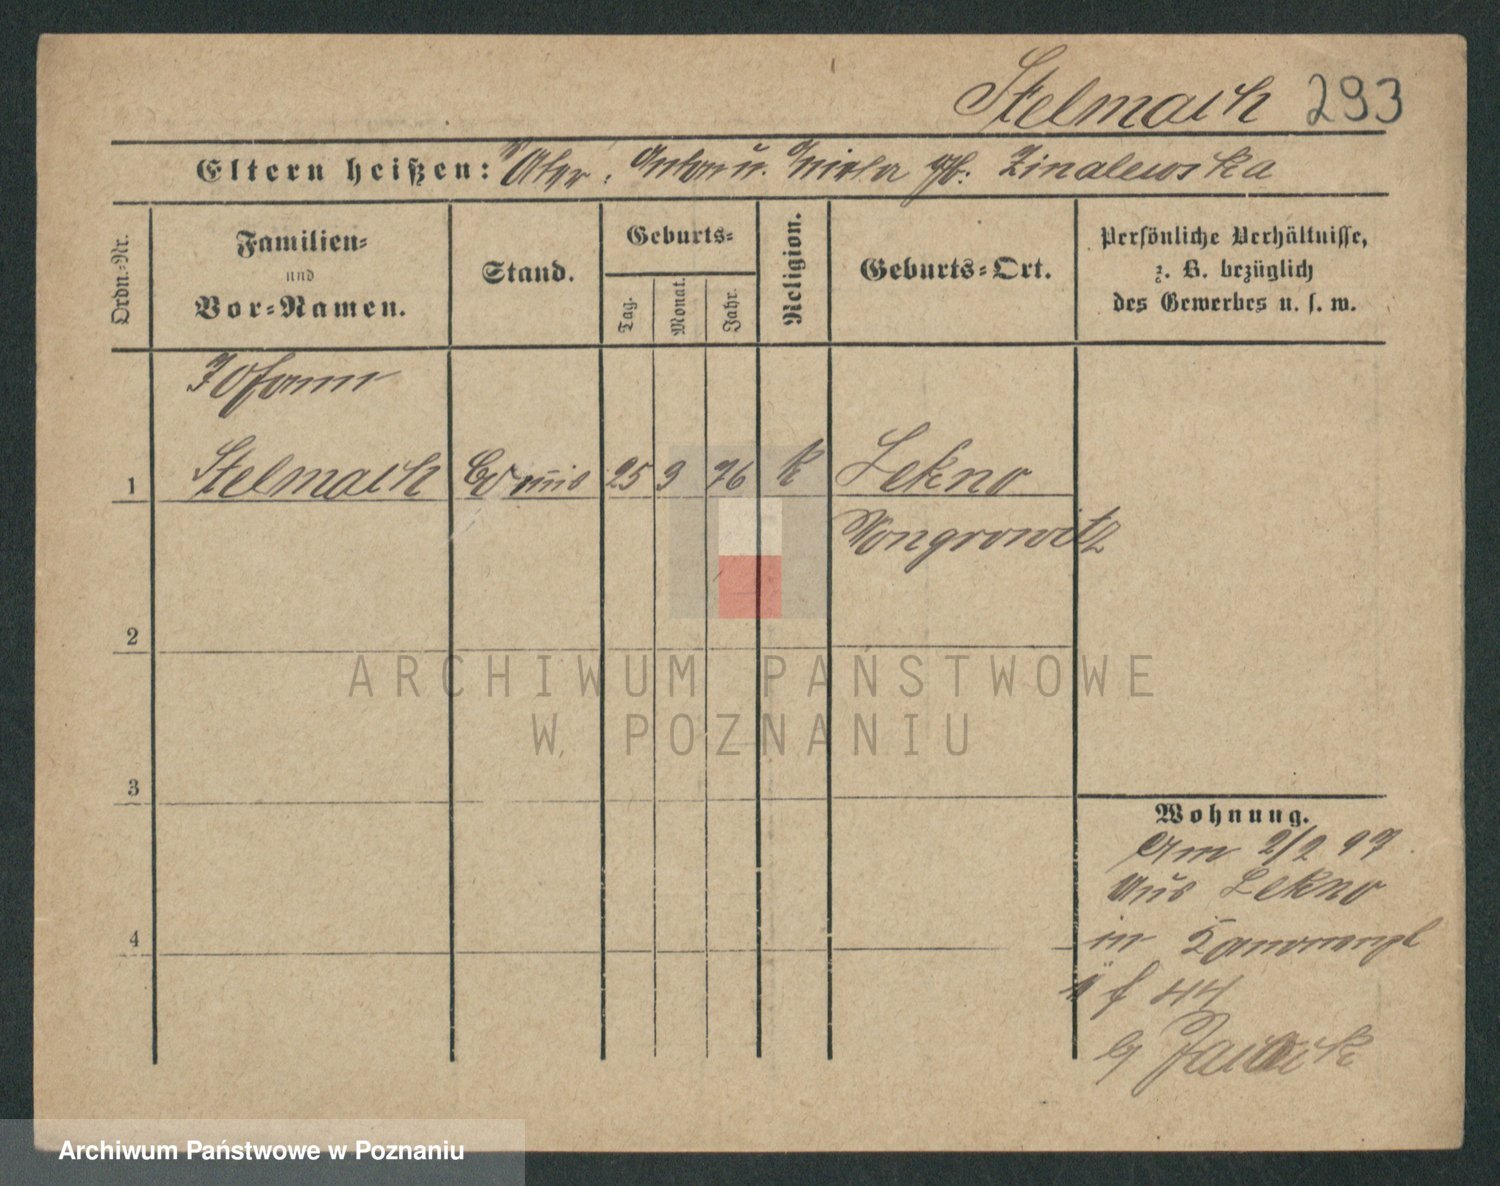 Stelmach 293
Eltern heißen: Anton u. geb. Zinalewska
Ordn.-Nr.
Familien-
und
Vor-Namen.
Stand.
Geburts-
Tag.
Monat.
Jahr.
Religion.
Geburts-Ort.
Persönliche Verhältnisse,
z. B. bezüglich
des Gewerbes u. s. w.
Johann
1 Stelmach Commis 25 9 76 k Lekno
Wongrowitz
2
3
4
Wohnung.
Am 2/2 97
aus Lekno
in
44
ARCHIWUM PAŃSTWOWE
W POZNANIU
Archiwum Państwowe w Poznaniu